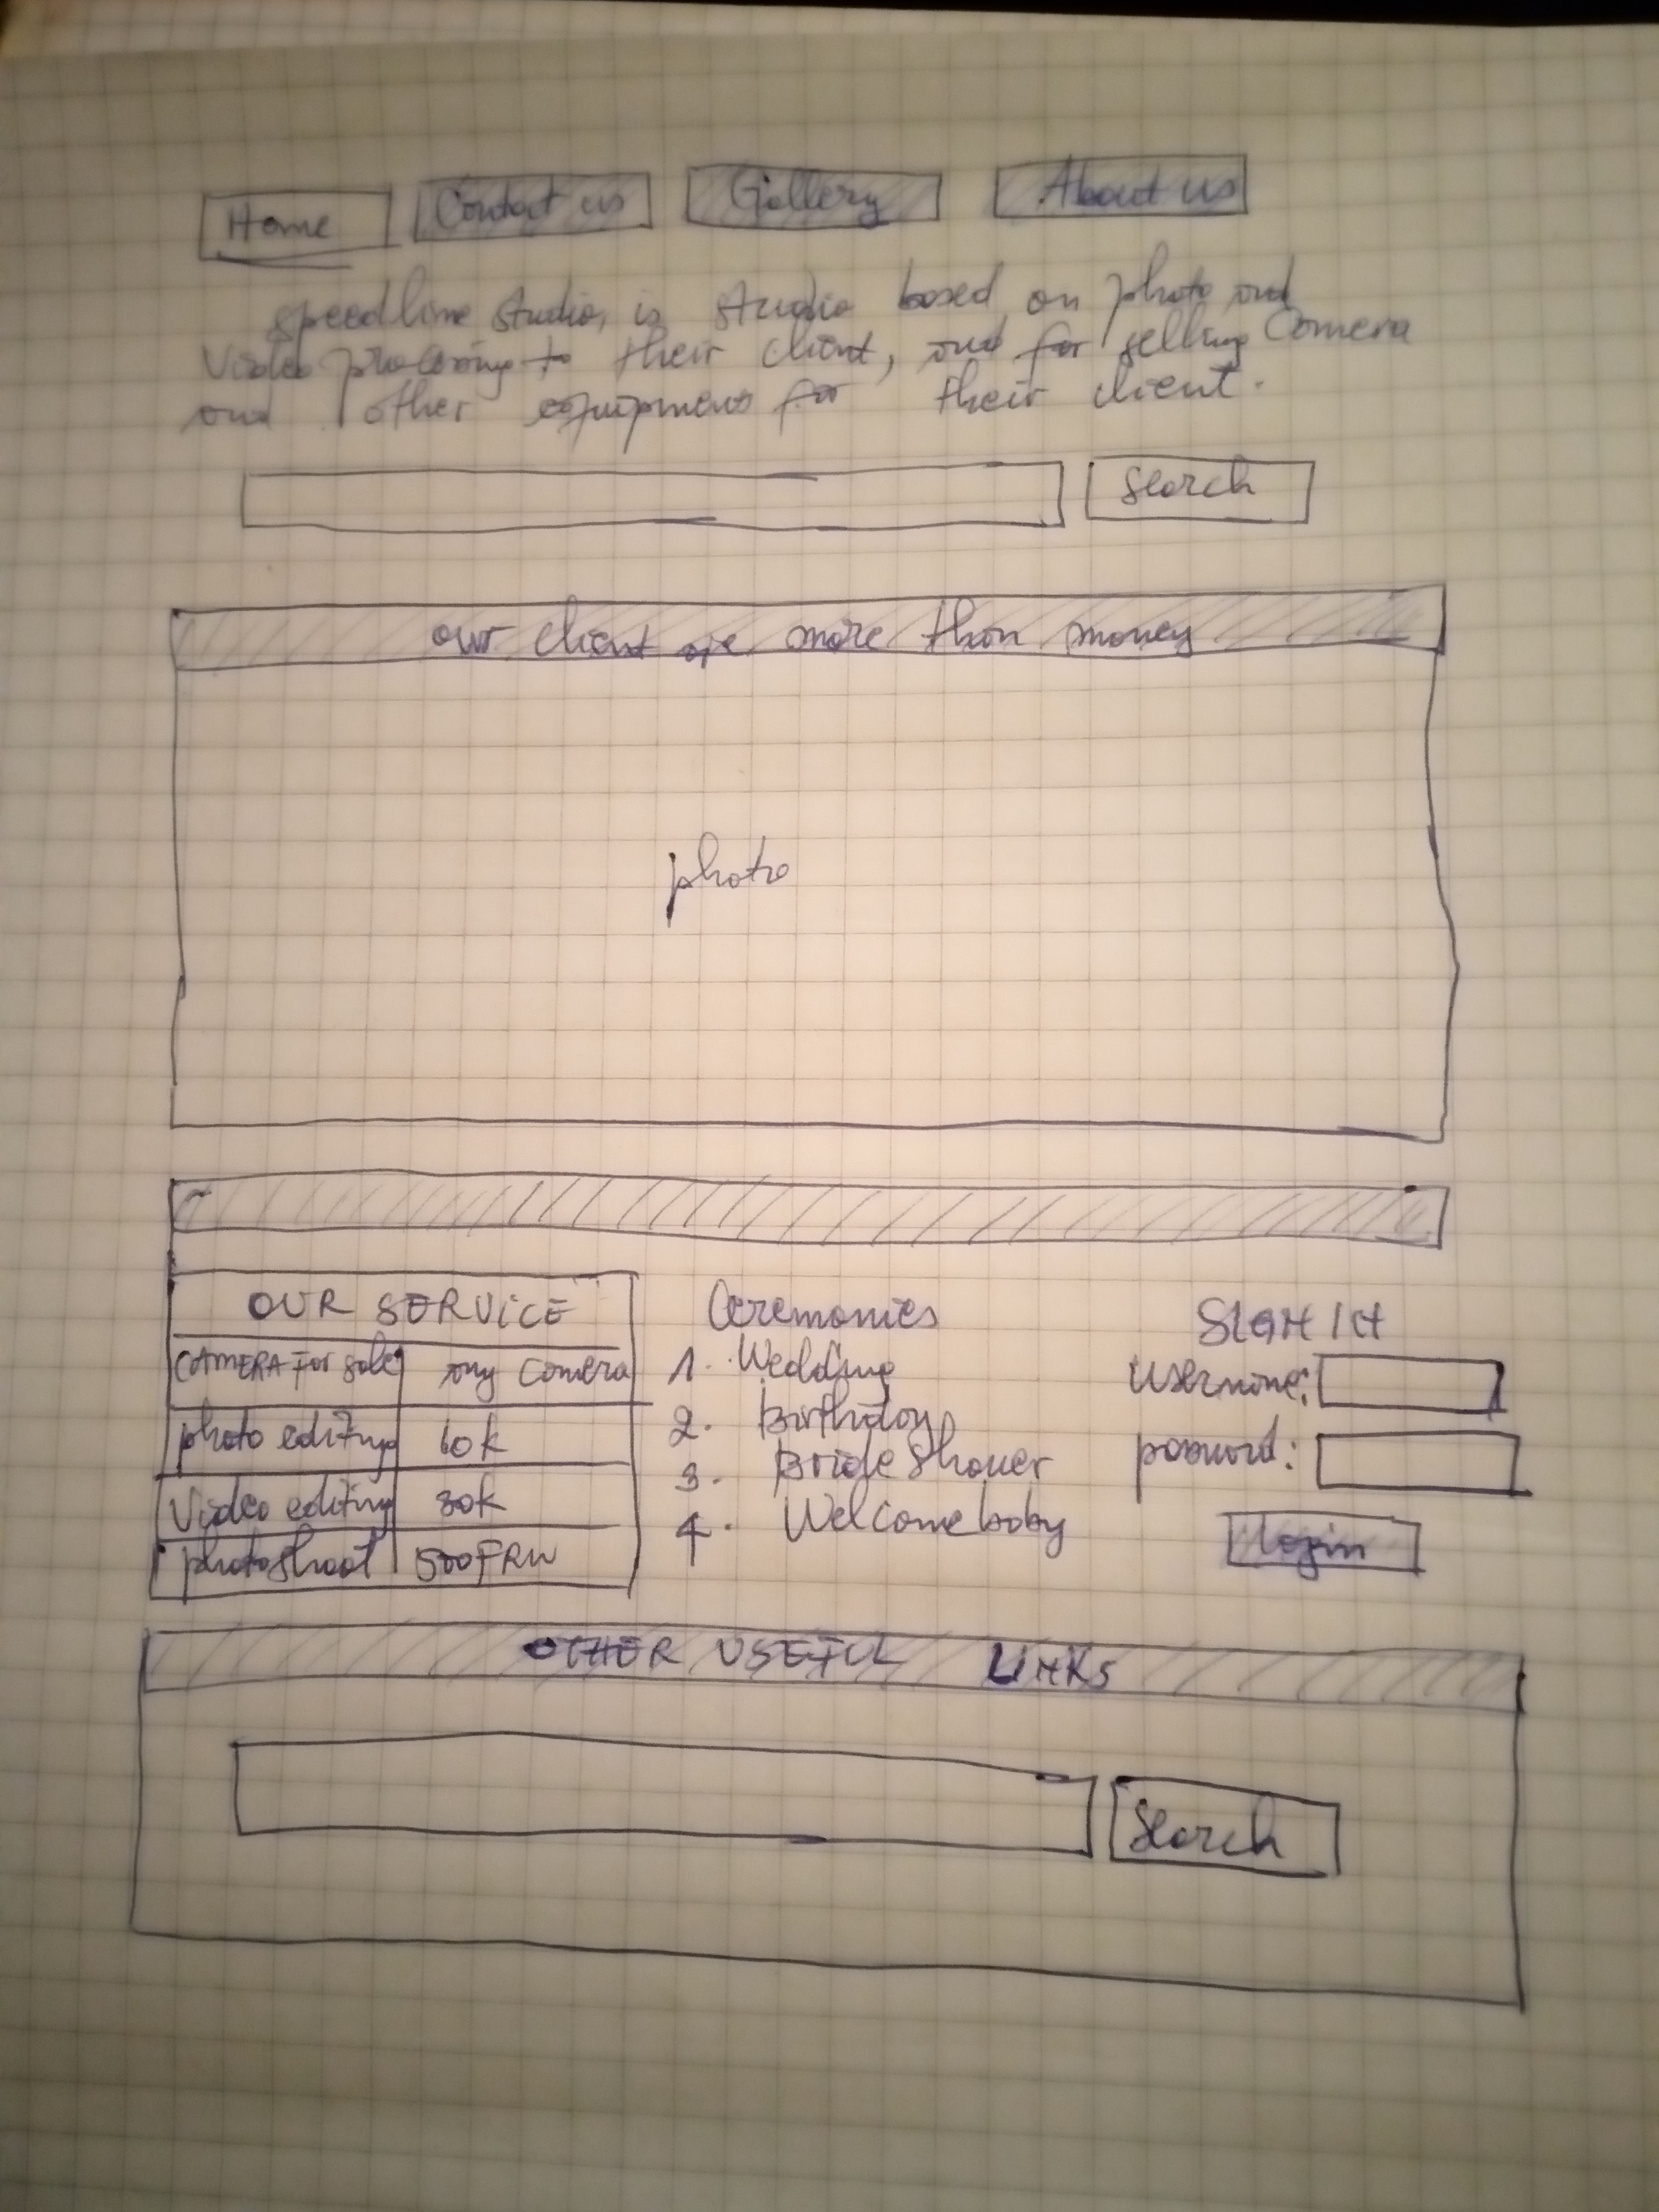 Home Contact us Gallery About us
speedline studio, is studio based on photo and
Video processing to their client, and for selling Camera
and other equipments for their client.
Search
our client are more than money
photo
OUR SERVICE
CAMERA For sale any camera
photo editing 10k
Video editing 30k
photoshoot 500FRW
Ceremonies
1. Wedding
2. Birthday
3. Bride Shower
4. Welcome baby
SIGN IN
Username:
password:
login
OTHER USEFUL LINKS
Search